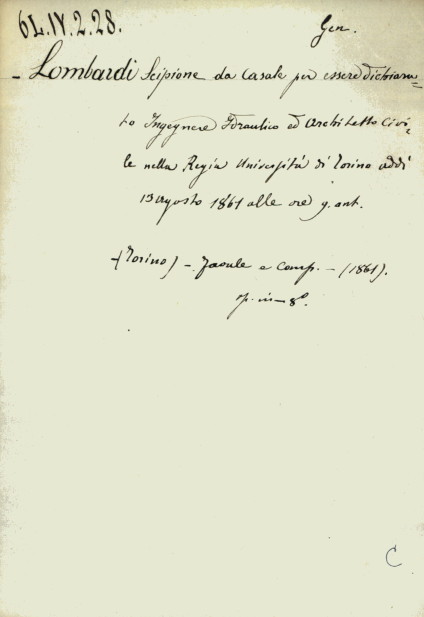 6L.IV.2.28.
Gen.
- Lombardi Scipione da Casale per essere dichiara=
to Ingegnere Idraulico ed Architetto Civi=
le nella Regia Università di Torino addì
13 Agosto 1861 alle ore 9. ant.
(Torino) - e Comp. - (1861).
op. in-8°.
C